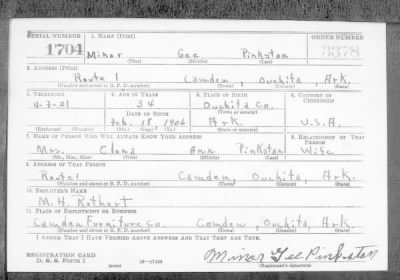 SERIAL NUMBER 1. NAME (Print) ORDER NUMBER
1704 Minor Gee Pinkston 3378
(First) (Middle) (Last)
2. ADDRESS (Print)
Route 1 Camden, Ouchita, Ark.
(Number and street or R. F. D. number) (Town) (County) (State)
3. TELEPHONE 4. AGE IN YEARS 5. PLACE OF BIRTH 6. COUNTRY OF CITIZENSHIP
4-7-21 34 Ouchita Co.
DATE OF BIRTH (Town or county)
Feb. 18, 1906 Ark. U.S.A.
(Exchange) (Number) (Mo.) (Day) (Yr.) (State or country)
7. NAME OF PERSON WHO WILL ALWAYS KNOW YOUR ADDRESS 8. RELATIONSHIP OF THAT PERSON
Mrs. Ann Pinkston Wife
(Mr., Mrs., Miss) (First) (Middle) (Last)
9. ADDRESS OF THAT PERSON
Route 1 Camden, Ouchita, Ark.
(Number and street or R. F. D. number) (Town) (County) (State)
10. EMPLOYER'S NAME
M. H. Rothert
11. PLACE OF EMPLOYMENT OR BUSINESS
Camden Furniture Co. Camden, Ouchita, Ark.
(Number and street or R. F. D. number) (Town) (County) (State)
I AFFIRM THAT I HAVE VERIFIED ABOVE ANSWERS AND THAT THEY ARE TRUE.
REGISTRATION CARD
D. S. S. FORM 1 (over) Minor Gee Pinkston
(Registrant's signature)